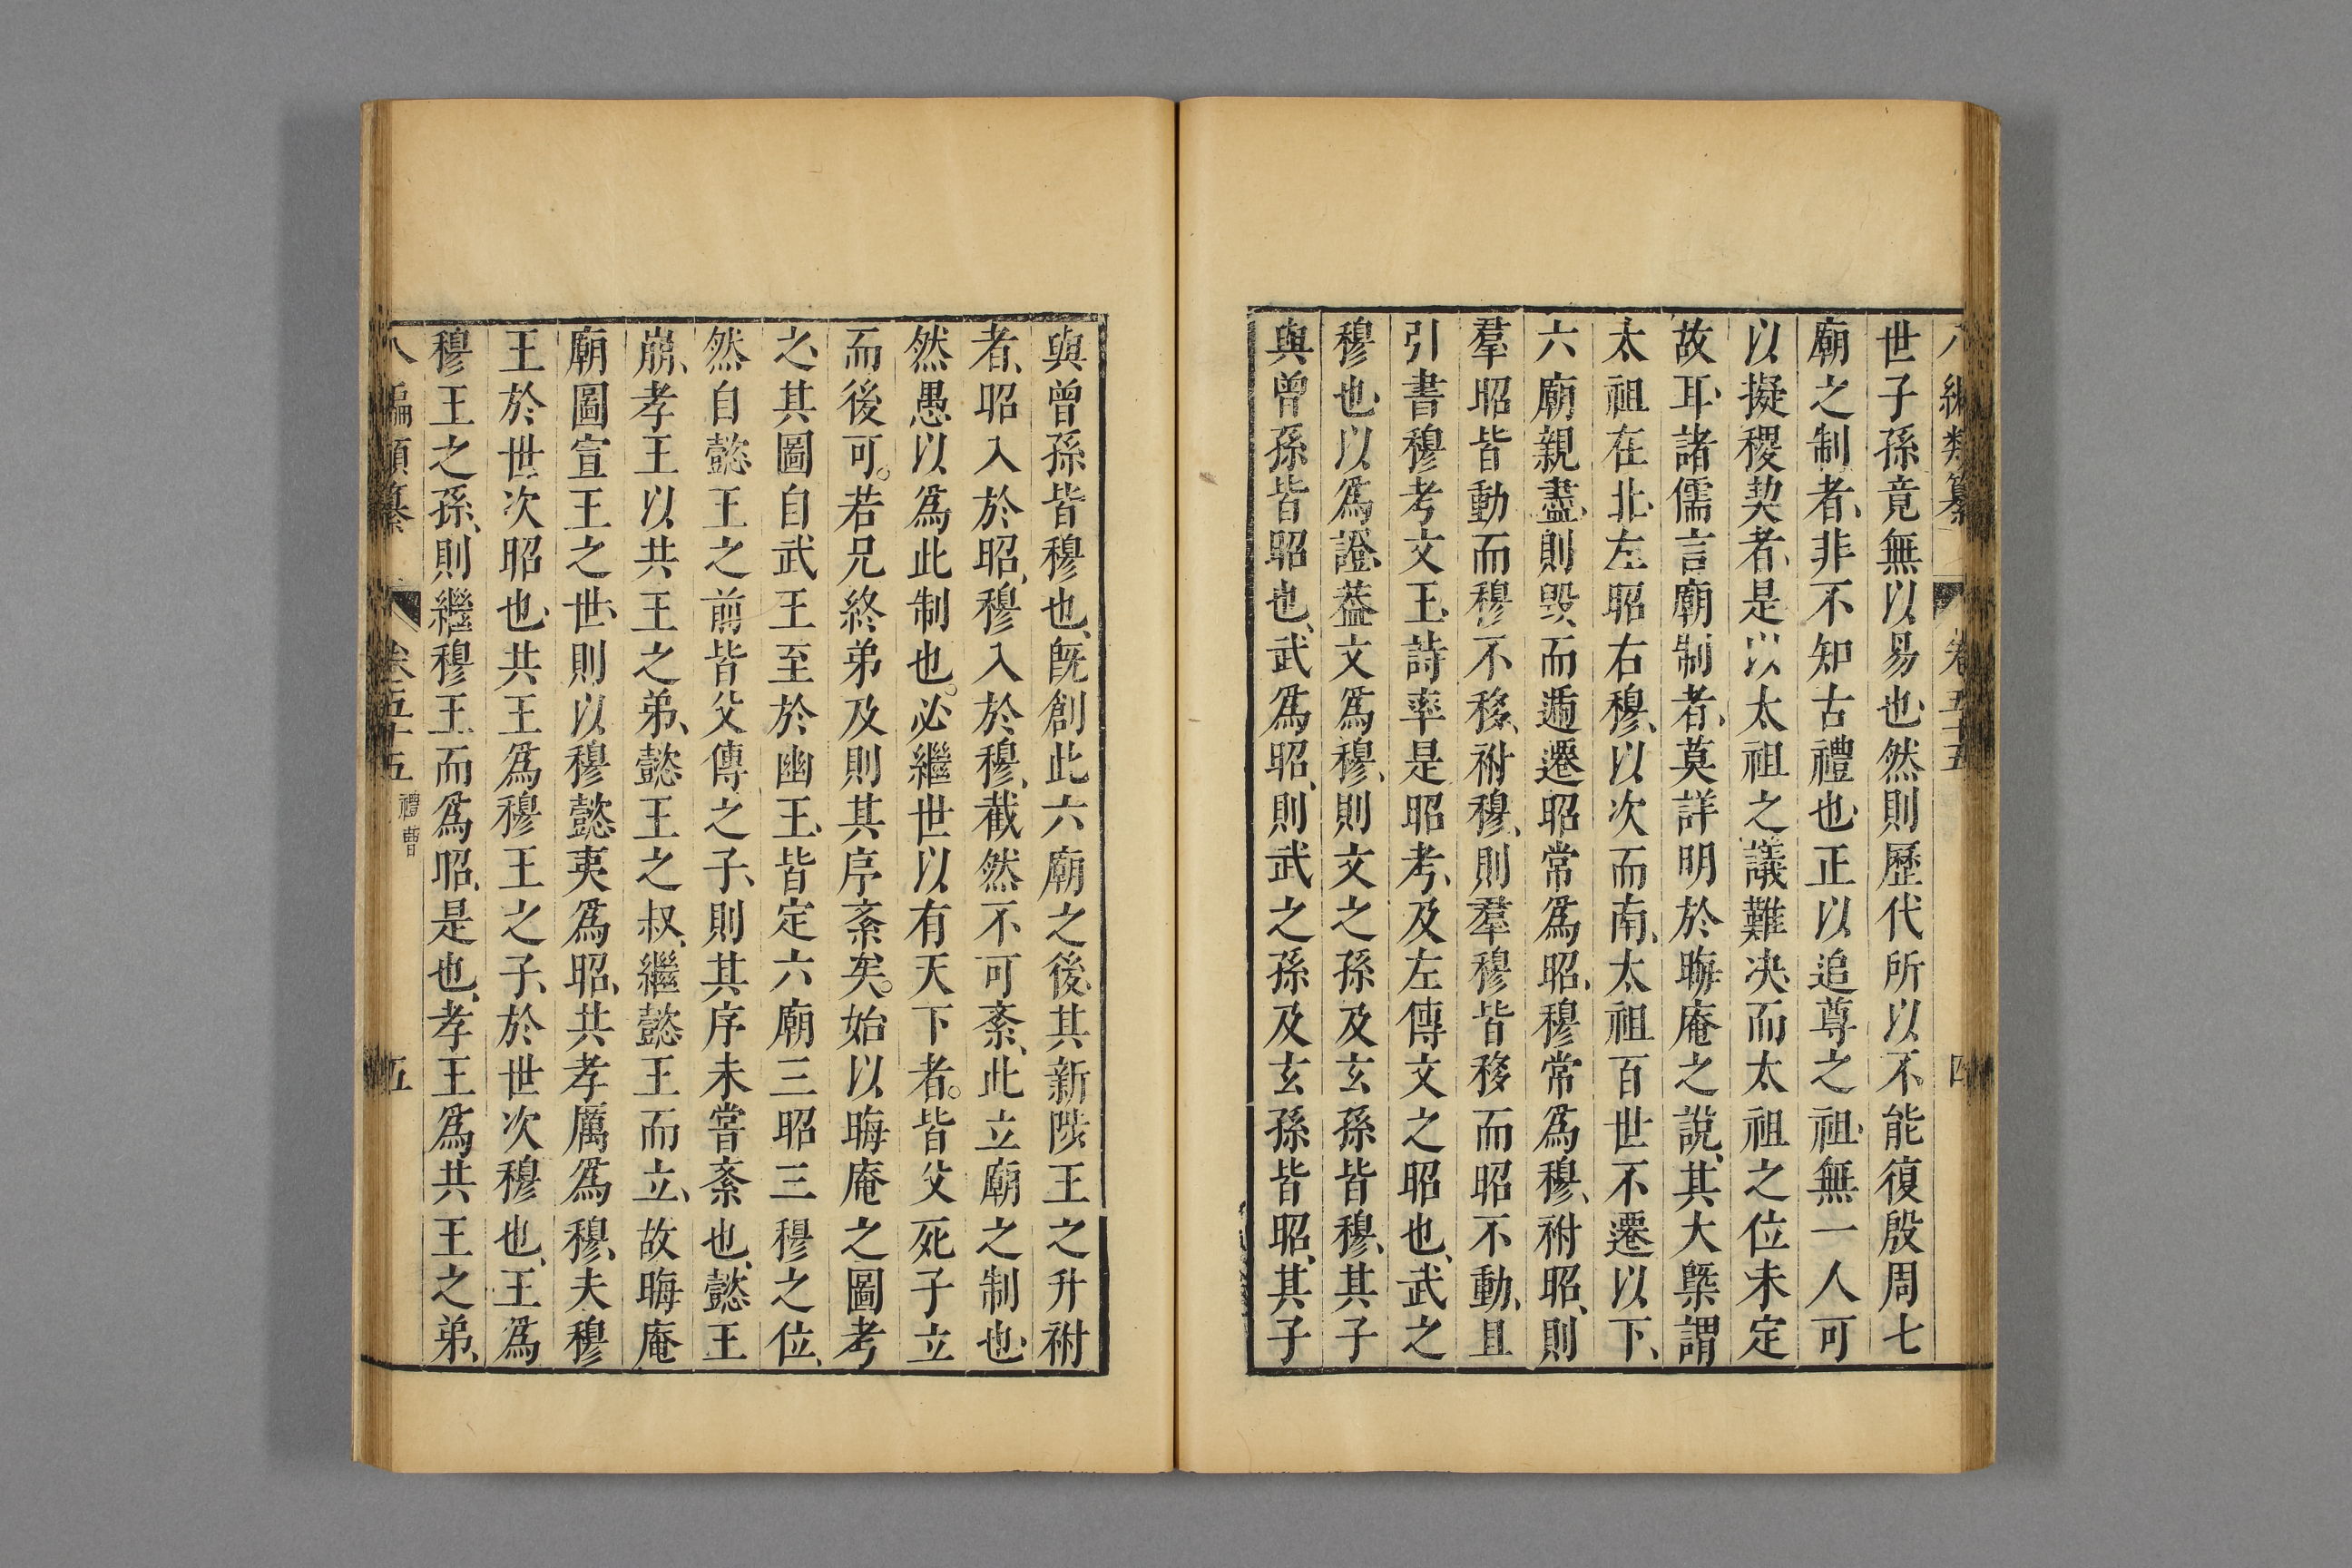 八編類纂 卷五十五 四
世子孫竟無以易也、然則歷代所以不能復殷周七
廟之制者、非不知古禮也、正以追尊之祖、無一人可
以擬稷契者、是以太祖之議難决、而太祖之位未定
故耳、諸儒言廟制者、莫詳明於晦庵之說、其大槩謂
太祖在北、左昭右穆、以次而南、太祖百世不遷、以下、
六廟親盡、則毀而遞遷、昭常爲昭、穆常爲穆、祔昭、則
羣昭皆動而穆不移、祔穆、則羣穆皆移而昭不動、且
引書穆考文王、詩率是昭考、及左傳文之昭也、武之
穆也、以爲證、葢文爲穆、則文之孫及玄孫皆穆、其子
與曾孫皆昭也、武爲昭、則武之孫及玄孫皆昭、其子
與曾孫皆穆也、旣創此六廟之後、其新陟王之升祔
者、昭入於昭、穆入於穆、截然不可紊、此立廟之制也、
然愚以爲此制也。必繼世以有天下者。皆父死子立
而後可。若兄終弟及則其序紊矣。始以晦庵之圖考
之、其圖自武王至於幽王、皆定六廟三昭三穆之位、
然自懿王之前皆父傳之子、則其序未嘗紊也、懿王
崩、孝王以共王之弟、懿王之叔、繼懿王而立、故晦庵
廟圖宣王之世、則以穆懿夷爲昭、共孝厲爲穆、夫穆
王於世次昭也、共王爲穆王之子、於世次穆也、王爲
穆王之孫、則繼穆王而爲昭、是也、孝王爲共王之弟、
八編類纂 卷五十五 禮曹 五